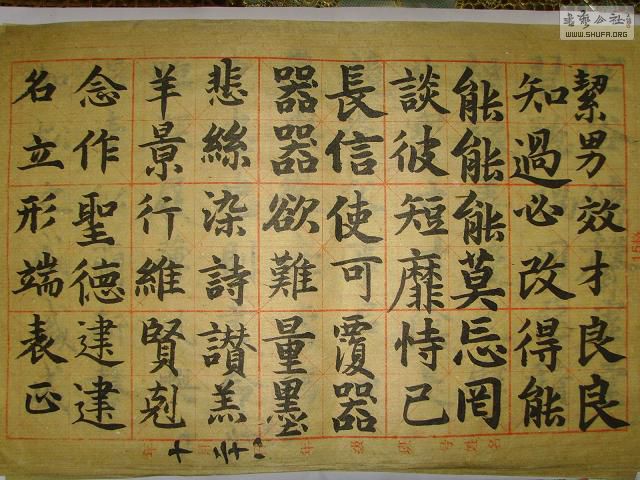 絜男效才良良
知過必改得能
能能能莫忘罔
談彼短靡恃己
長信使可覆器
器器欲難量墨
悲絲染詩讃羔
羊景行維賢剋
念作聖德建建
名立形端表正
WWW.SHUFA.ORG